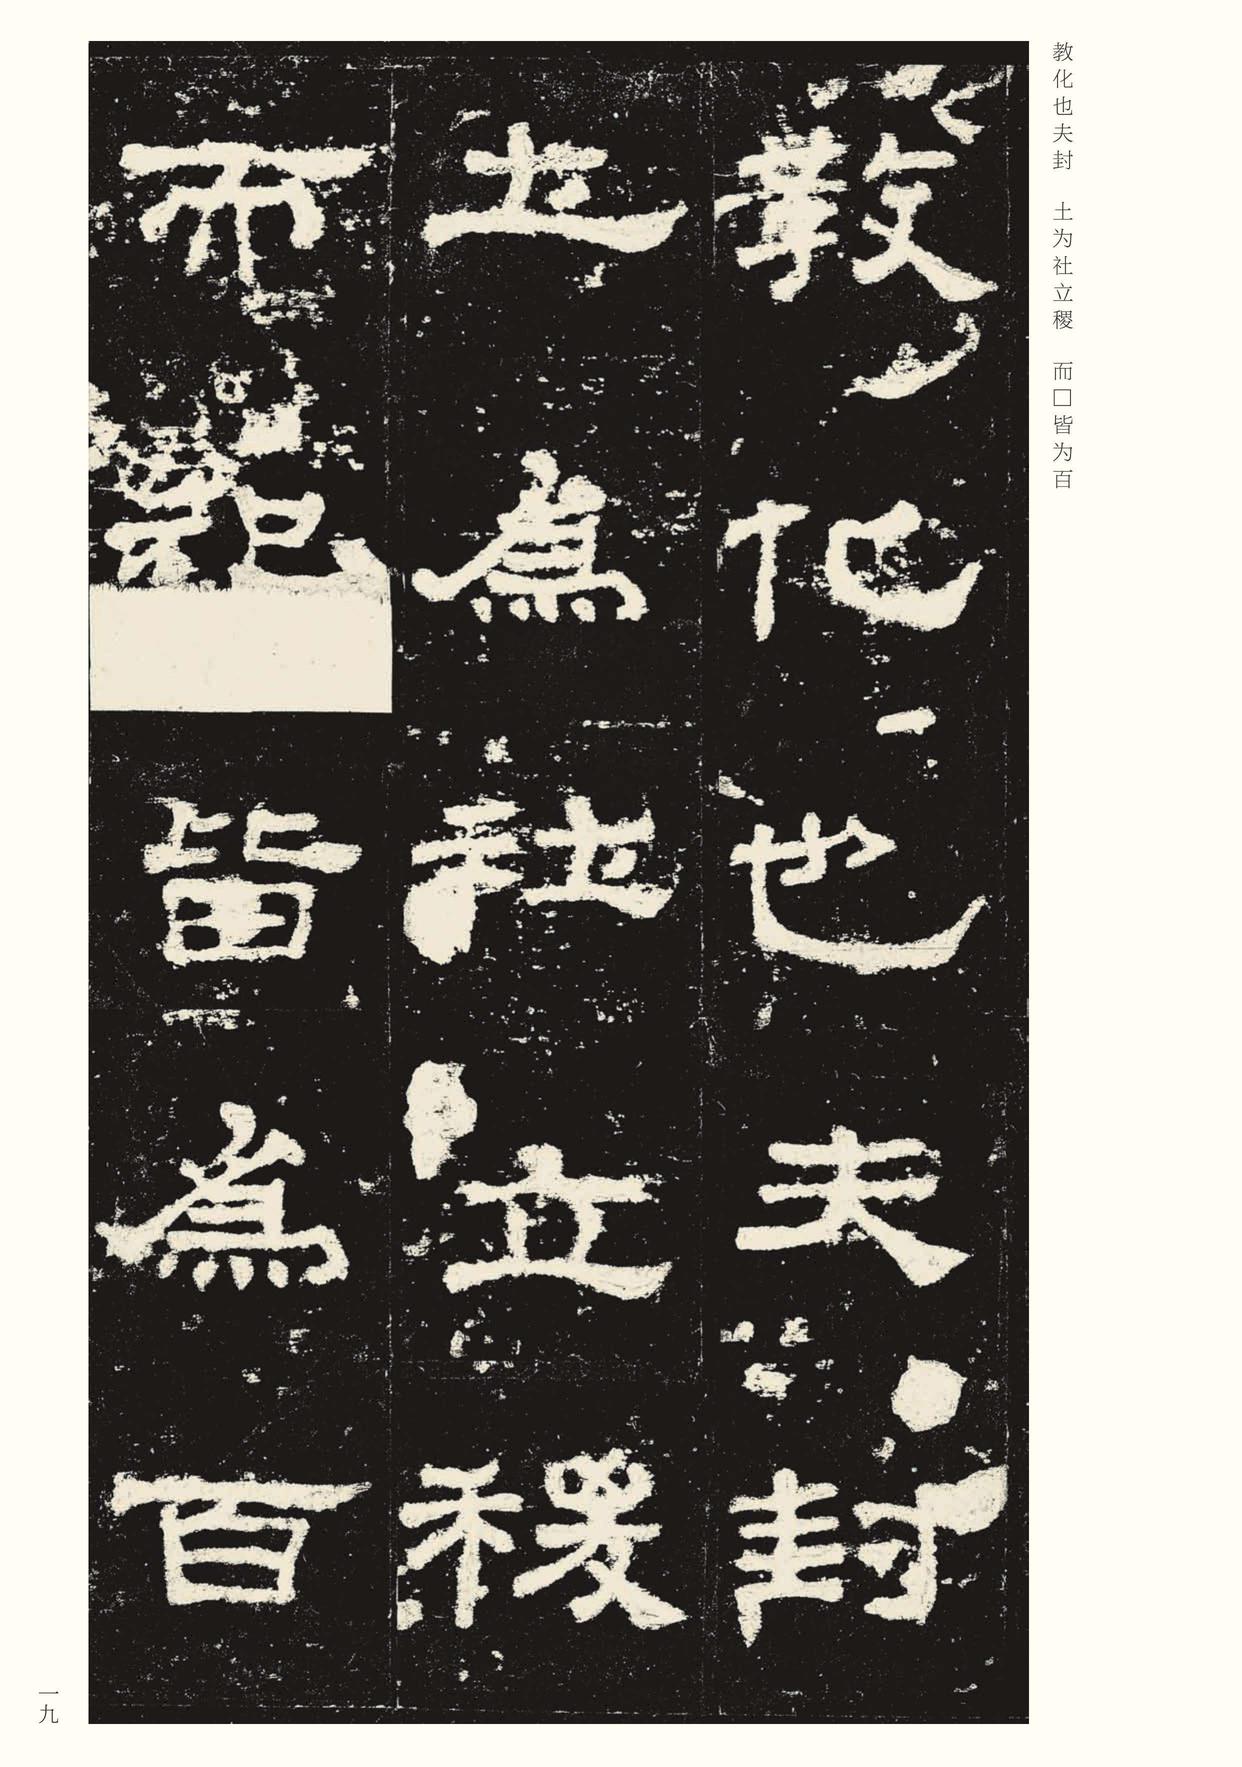 教化也夫封　土为社立稷　而□皆为百
教化也夫封
土為社立稷
而祀皆為百
一九